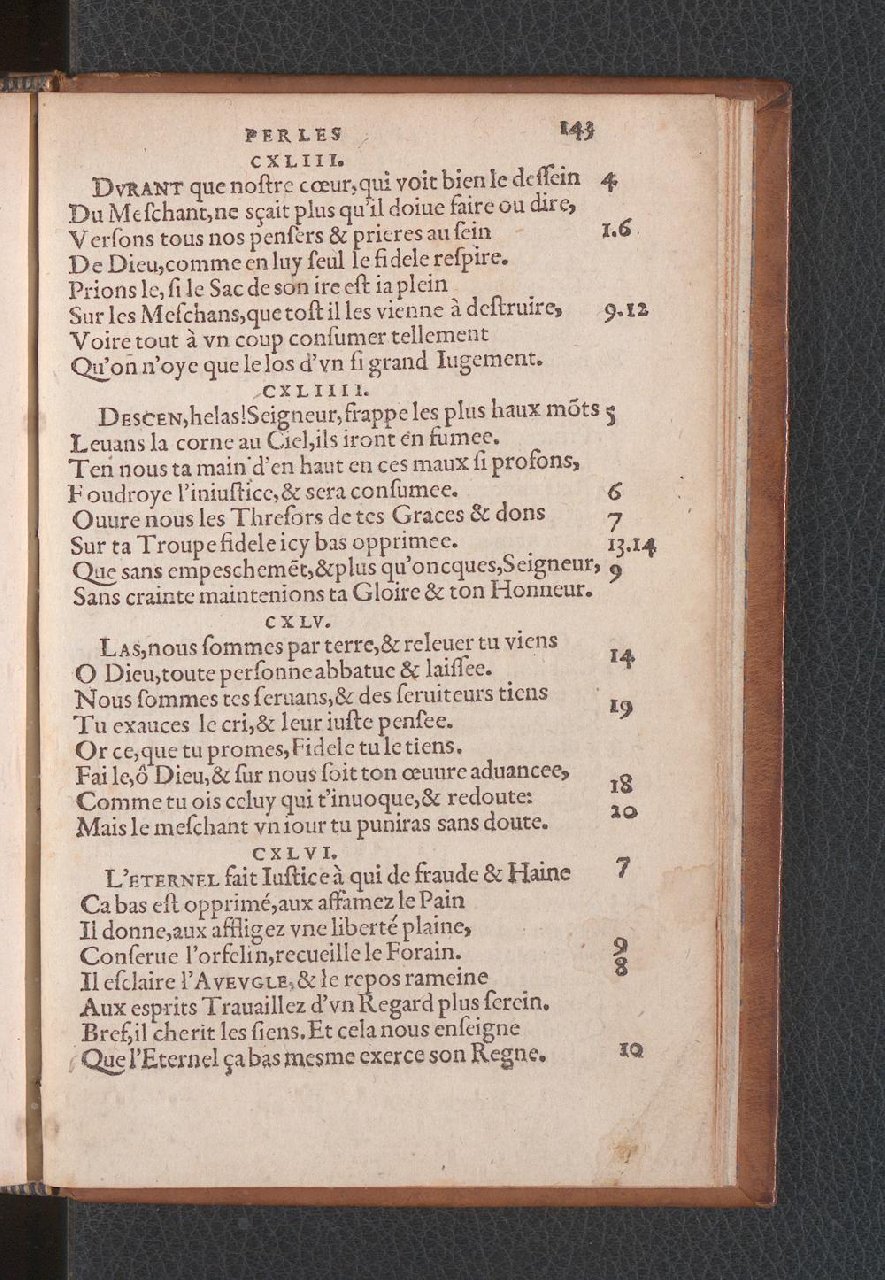 PERLES 143
CXLIII.
DVRANT que noſtre cœur, qui voit bien le deſſein 4
Du Meſchant, ne sçait plus qu'il doiue faire ou dire,
Verſons tous nos penſers & prieres au ſein 1.6
De Dieu, comme en luy ſeul le fidele reſpire.
Prions le, ſi le Sac de son ire eſt ia plein
Sur les Meſchans, que toſt il les vienne à deſtruire, 9.12
Voire tout à vn coup conſumer tellement
Qu'on n'oye que le los d'vn ſi grand Iugement.
CXLIIII.
DESCEN, helas! Seigneur, frappe les plus haux mõts 5
Leuans la corne au Ciel, ils iront en fumee.
Ten nous ta main d'en haut en ces maux ſi profons,
Foudroye l'iniuſtice, & sera conſumee. 6
Ouure nous les Threſors de tes Graces & dons 7
Sur ta Troupe fidele icy bas opprimee. 13.14
Que sans empeschemẽt, & plus qu'oncques, Seigneur, 9
Sans crainte maintenions ta Gloire & ton Honneur.
CXLV.
LAS, nous ſommes par terre, & releuer tu viens
O Dieu, toute perſonne abbatue & laiſſee. 14
Nous ſommes tes ſeruans, & des ſeruiteurs tiens
Tu exauces le cri, & leur iuſte penſee. 19
Or ce, que tu promes, Fidele tu le tiens.
Fai le, ô Dieu, & ſur nous ſoit ton œuure aduancee,
Comme tu ois celuy qui t'inuoque, & redoute: 18
Mais le meſchant vn iour tu puniras sans doute. 20
CXLVI.
L'ETERNEL fait Iuſtice à qui de fraude & Haine 7
Ca bas eſt opprimé, aux affamez le Pain
Il donne, aux affligez vne liberté plaine,
Conſerue l'orfelin, recueille le Forain. 9
Il eſclaire l'AVEVGLE, & le repos rameine 8
Aux esprits Trauaillez d'vn Regard plus ſerein.
Bref, il cherit les ſiens. Et cela nous enſeigne
Que l'Eternel ça bas meſme exerce son Regne. 10